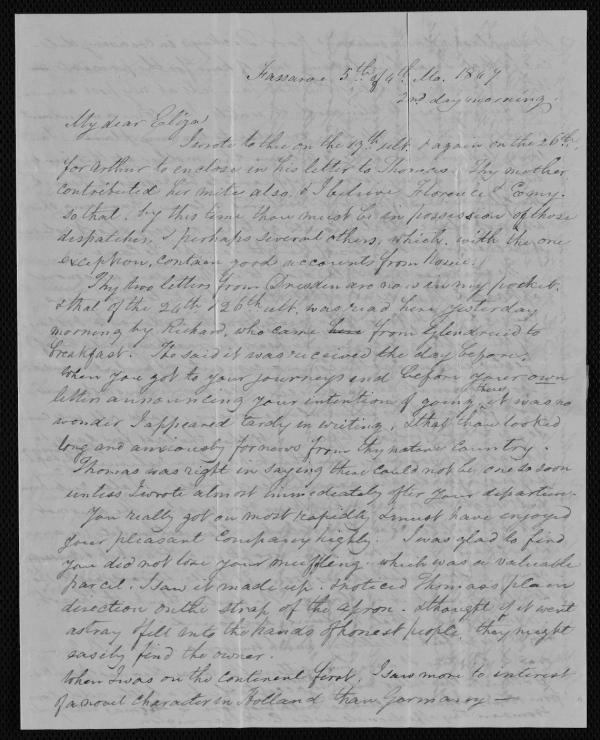 Fassaroe 5th of 4th Mo. 1847
2nd day morning.
My dear Eliza
I wrote to thee on the 19th ult. & again on the 26th,
for Arthur to enclose in his letter to Thomas. Thy mother
contributed her mite also, & I believe Florence & Emy.
so that, by this time thou must be in possession of those
despatches, & perhaps several others, which, with the one
exception, contain good accounts from home.
Thy two letters from Dresden are now in my pocket.
& that of the 24th & 26th ult. was read here yesterday
morning by Richard, who came here from Glendruid to
breakfast. He said it was received the day before.
When you got to your journeys end before your own
letters announcing your intention of going there it was no
wonder I appeared tardy in writing, & that thou looked
long and anxiously for news from thy native country.
Thomas was right in saying there could not be one so soon
unless I wrote almost immediately after your departure.
You really got on most rapidly, & must have enjoyed
your pleasant Company highly. I was glad to find
you did not lose your muffling, which was a valuable
parcel. I saw it made up. & noticed Thomas's plain
direction on the strap of the apron. & thought if it went
astray & fell into the hands of honest people, they might
easily find the owner.
When I was on the continent first, I saw more to interest
of a novel character in Holland than Germany —